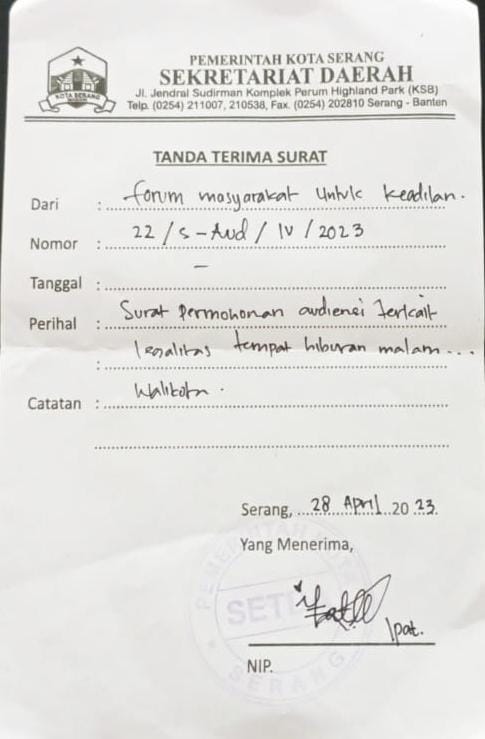 KOTA SERANG
PEMERINTAH KOTA SERANG
SEKRETARIAT DAERAH
Jl. Jendral Sudirman Komplek Perum Highland Park (KSB)
Telp. (0254) 211007, 210538, Fax. (0254) 202810 Serang - Banten
TANDA TERIMA SURAT
Dari : forum masyarakat untuk keadilan.
Nomor : 22 / S-Aud / IV / 2023
Tanggal : -
Perihal : Surat permohonan audiensi terkait
: legalitas tempat hiburan malam...
Catatan : Walikota.
Serang, 28 April 2023.
Yang Menerima,
PEMERINTAH KOTA
SETDA
SERANG
Ipat.
NIP.